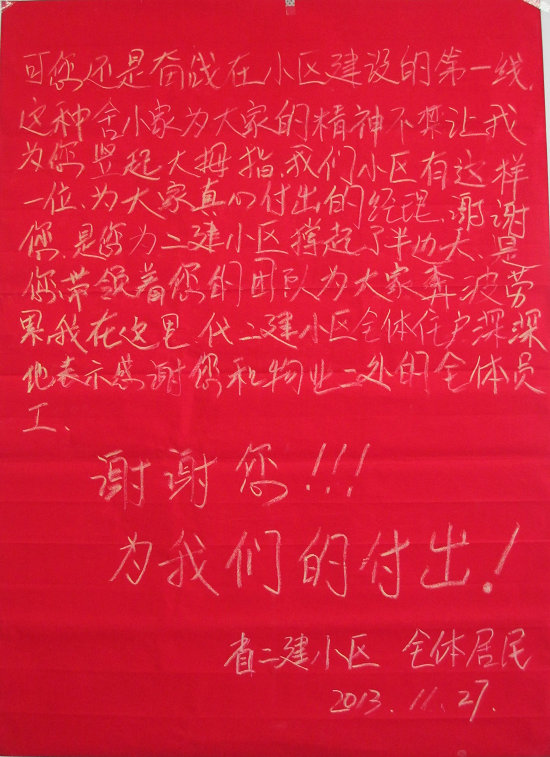 可您还是奋战在小区建设的第一线,
这种舍小家为大家的精神不禁让我
为您竖起大拇指,我们小区有这样
一位、为大家真心付出的经理、谢谢
您、是您为二建小区撑起了半边天、是
您带领着您的团队为大家奔波劳
累我在这里代二建小区全体住户深深
地表示感谢您和物业二处的全体员
工、
谢谢您!!!
为我们的付出!
省二建小区 全体居民
2013.11.27.